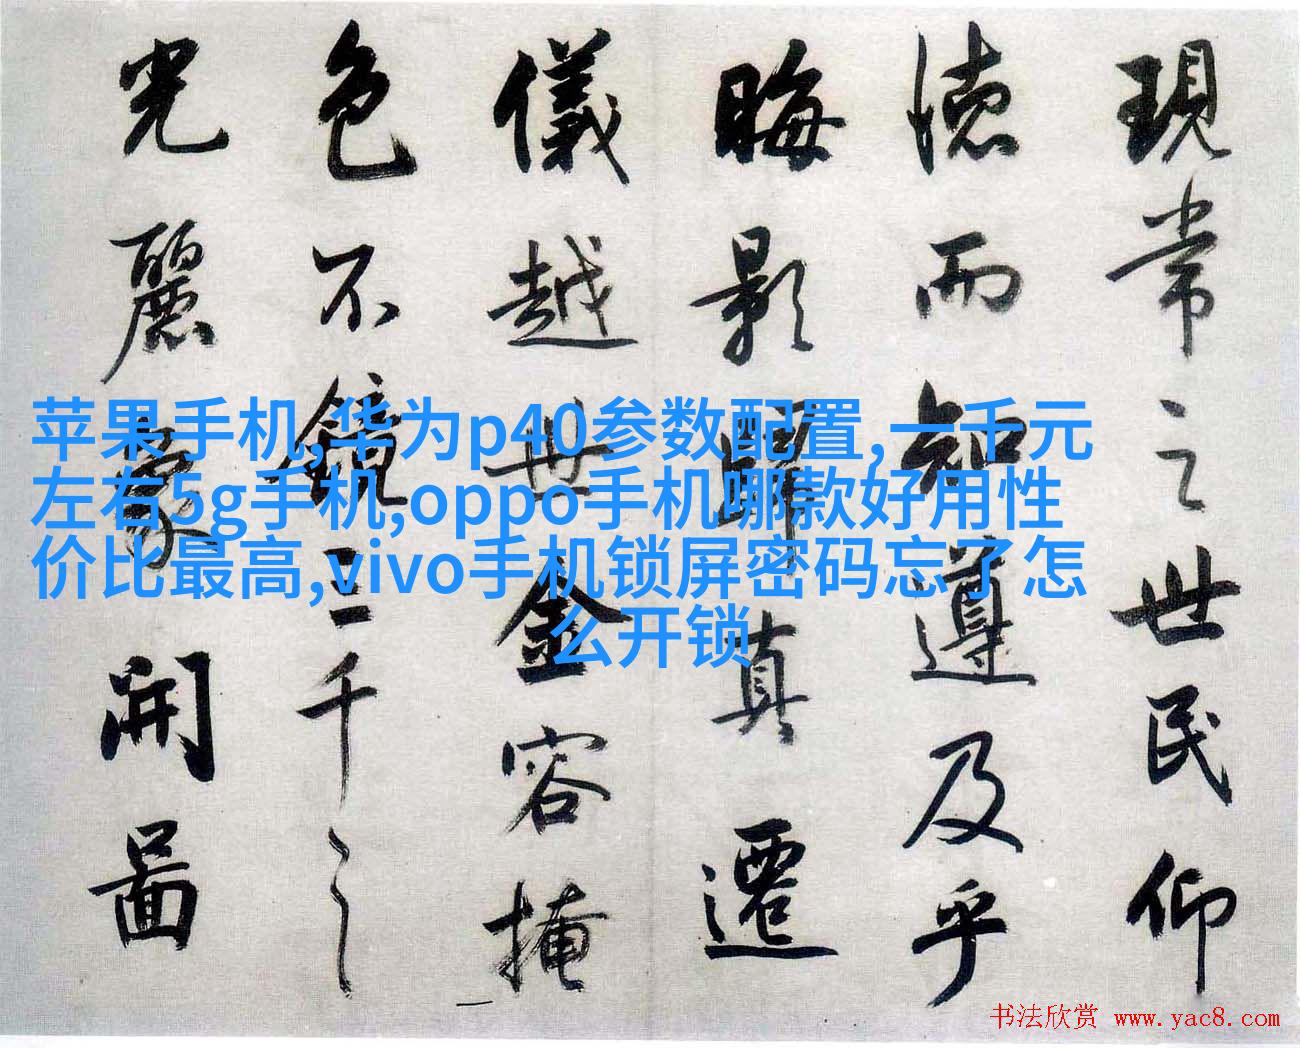 現常之世民仰
徳而知遵及乎
晦影歸真遷
儀越世金容掩
色不鏡三千之
光麗象開圖
苹果手机,华为p40参数配置,一千元
左右5g手机,oppo手机哪款好用性
价比最高,vivo手机锁屏密码忘了怎
么开锁
书法欣赏 www.yac8.com